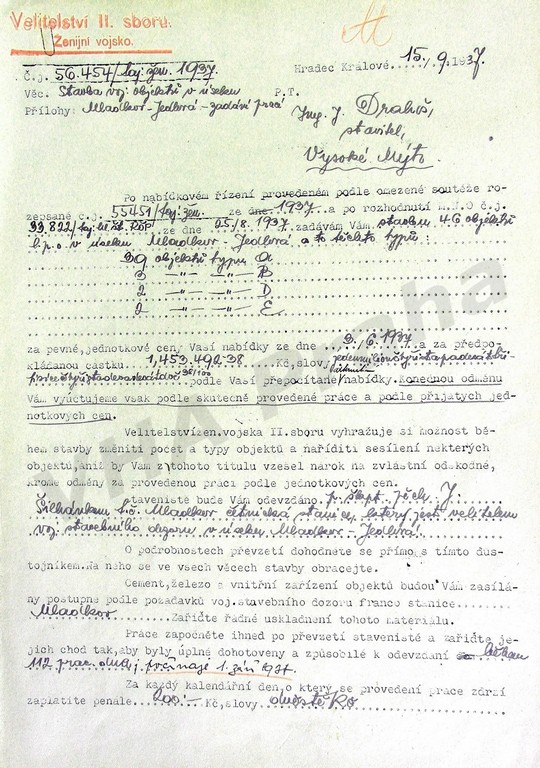 Velitelství II. sboru.
Ženijní vojsko.
Č.j. 56.454/taj.žen. 1937.
Hradec Králové 15./9.1937.
Věc. Stavba voj. objektů v úseku P.T.
Přílohy: Mladkov-Jedlová-zadání prací
Ing. J. Drahoš,
stavitel,
Vysoké Mýto.
Po nabídkovém řízení provedeném podle omezené soutěže ro-
zepsané č.j. 55451/taj.žen. ze dne 1937 a po rozhodnutí M.N.O č.j.
33.822/taj. ze dne 25/8.1937. zadávám Vám stavbu 46 objektů
l.p.o v úseku Mladkov-Jedlová, a to těchto typů:
39 objektů typu A
3 -"- -"- B
2 -"- -"- D
2 -"- -"- E
za pevné, jednotkové ceny Vaší nabídky ze dne 9./6 1937 a za předpo-
kládanou částku 1,453.492.38 Kč, slovy jedenmiliončtyřistapadesáttři-
podle Vaší přepočítané nabídky. Konečnou odměnu
Vám vyúčtujeme však podle skutečně provedené práce a podle přijatých jed-
notkových cen.
Velitelstvížen.vojska II.sboru vyhražuje si možnost bě-
hem stavby změniti počet a typy objektů a naříditi sesílení některých
objektů, aniž by Vám z tohoto titulu vzešel nárok na zvláštní odškodné,
kromě odměny za provedenou práci podle jednotkových cen.
Staveniště bude Vám odevzdáno p. škpt. pěch. J.
Šilhánkem t.č. Mladkov četnická stanice, který jest velitelem
voj. stavebního dozoru v úseku Mladkov-Jedlová.
O podrobnostech převzetí dohodněte se přímo s tímto důs-
tojníkem. Na něho se ve všech věcech stavby obracejte.
Cement, železo a vnitřní zařízení objektů budou Vám zasílá-
ny postupně podle požadavků voj.stavebního dozoru franco stanice
Mladkov Zařiďte řádné uskladnění tohoto materiálu.
Práce započněte ihned po převzetí staveniště a zařiďte je-
jich chod tak, aby byly úplně dohotoveny a způsobilé k odevzdání během
112 prac. dnů, počínaje 1. září 1937.
Za každý kalendářní den, o který se provedení práce zdrží
zaplatíte penále 200.- Kč, slovy dvěstě Kč
VHA Praha